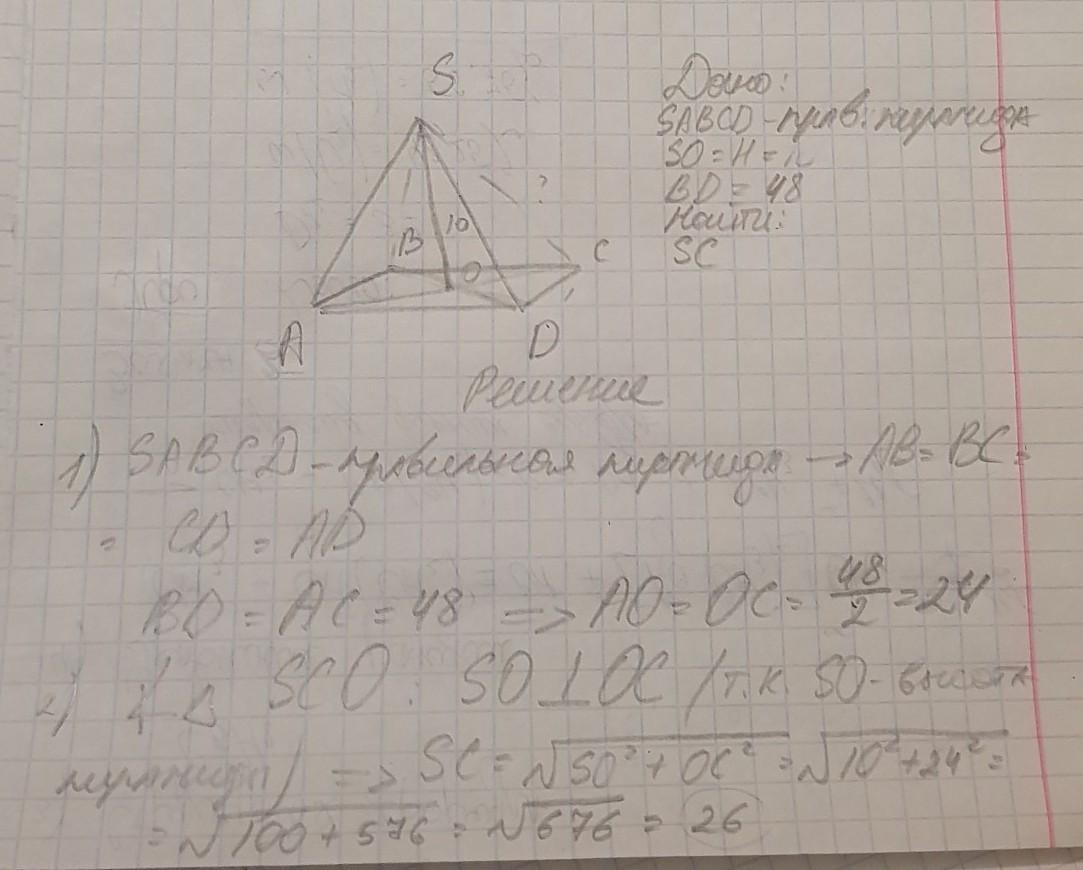 S
Дано:
SABCD - прав. пирамида
SO = H =
BD = 48
Найти:
SC
?
10
B
O
C
A
D
Решение
1) SABCD - правильная пирамида → AB = BC =
= CD = AD
BD = AC = 48 => AO = OC = 48/2 = 24
2) Δ SCO : SO ⊥ OC (т.к. SO - высота
пирамиды) => SC = √SO² + OC² = √10² + 24² =
= √100 + 576 = √676 = 26